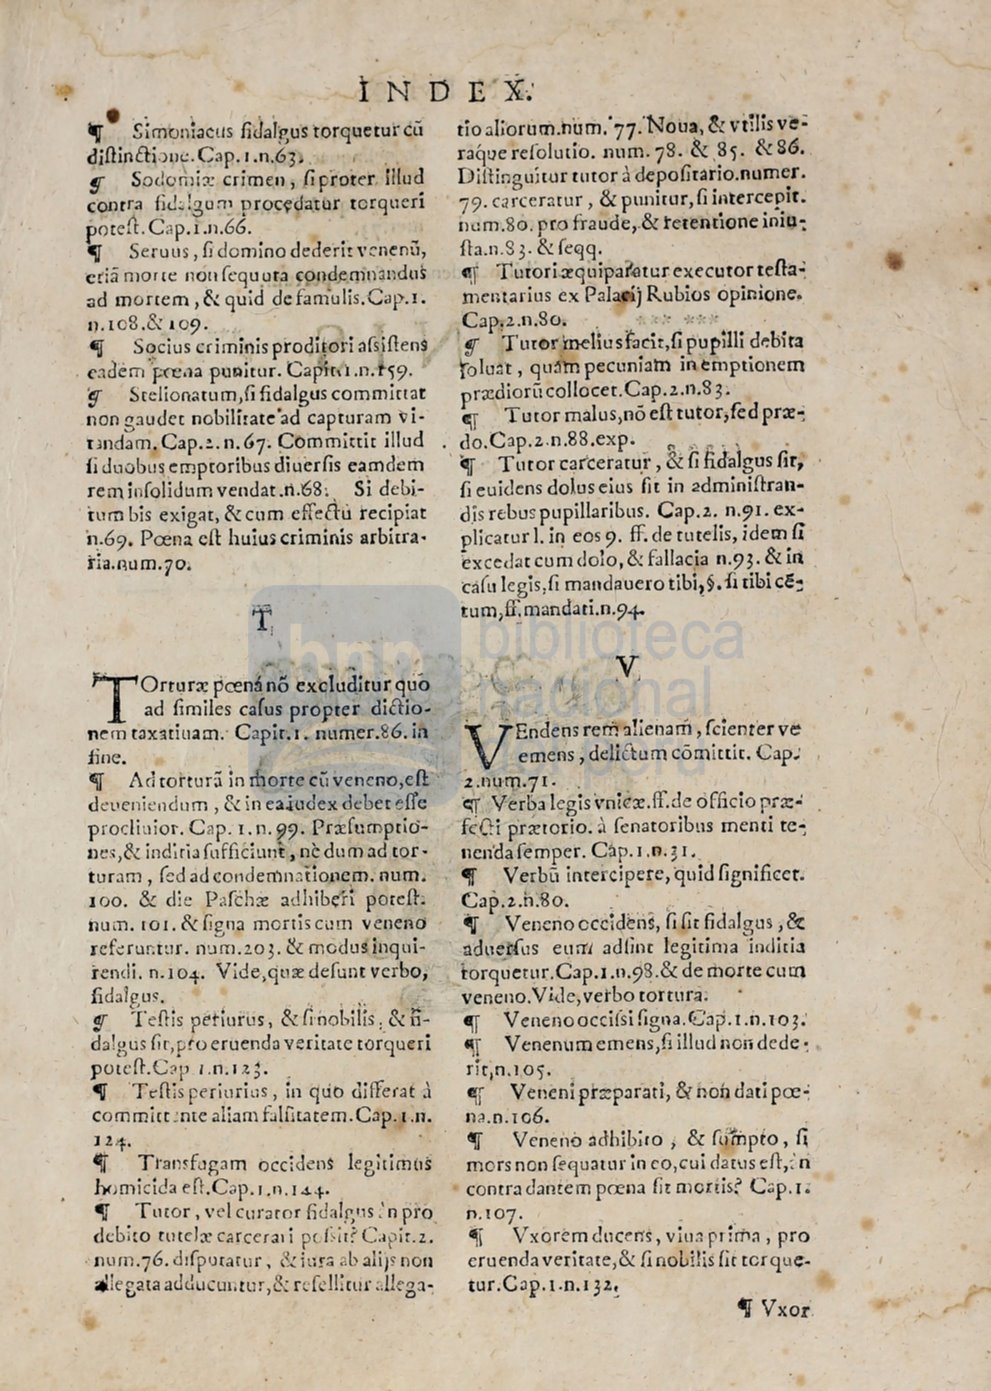 INDEX.
¶ Simoniacus fidalgus torquetur cũ
distinctione. Cap. 1. n. 63.
¶ Sodomiæ crimen, si propter illud
contra fidalgum procedatur torqueri
potest. Cap. 1. n. 66.
¶ Seruus, si domino dederit venenũ,
etiã morte non sequuta condemnandus
ad mortem, & quid de famulis. Cap. 1.
n. 108. & 109.
¶ Socius criminis proditori assistens
eadem pœna punitur. Capit. 1. n. 159.
¶ Stelionatum, si fidalgus committat
non gaudet nobilitate ad capturam vi-
tandam. Cap. 2. n. 67. Committit illud
si duobus emptoribus diuersis eamdem
rem insolidum vendat. n. 68. Si debi-
tum bis exigat, & cum effectu recipiat
n. 69. Pœna est huius criminis arbitra-
ria. num. 70.
T
TOrturæ pœnã nõ excluditur quo
ad similes casus propter dictio-
nem taxatiuam. Capit. 1. numer. 86. in
fine.
¶ Ad torturã in morte cũ veneno, est
deueniendum, & in ea iudex debet esse
procliuior. Cap. 1. n. 99. Præsumptio-
nes, & inditia sufficiunt, nedum ad tor-
turam, sed ad condemnationem. num.
100. & die Paschæ adhiberi potest.
num. 101. & signa mortis cum veneno
referuntur. num. 203. & modus inqui-
rendi. n. 104. Vide, quæ desunt verbo,
fidalgus.
¶ Testis periurus, & si nobilis, & fi-
dalgus sit, pro eruenda veritate torqueri
potest. Cap 1. n. 123.
¶ Testis periurius, in quo differat à
committente aliam falsitatem. Cap. 1. n.
124.
¶ Transfugam occidens legitimus
homicida est. Cap. 1. n. 144.
¶ Tutor, vel curator fidalgus in pro
debito tutelæ carcerari possit? Capit. 2.
num. 76. disputatur, & iura ab alijs non
allegata adducuntur, & refellitur allega-
tio aliorum. num. 77. Noua, & vtilis ve-
raque resolutio. num. 78. & 85. & 86.
Distinguitur tutor à depositario. numer.
79. carceratur, & punitur, si intercepit.
num. 80. pro fraude, & retentione iniu-
sta. n. 83. & seqq.
¶ Tutori æquiparatur executor testa-
mentarius ex Palacij Rubios opinione.
Cap. 2. n. 80.
¶ Tutor melius facit, si pupilli debita
soluat, quàm pecuniam in emptionem
prædiorũ collocet. Cap. 2. n. 83.
¶ Tutor malus, nõ est tutor, sed præ-
do. Cap. 2. n. 88. exp.
¶ Tutor carceratur, & si fidalgus sit,
si euidens dolus eius sit in administran-
dis rebus pupillaribus. Cap. 2. n. 91. ex-
plicatur l. in eos 9. ff. de tutelis, idem si
excedat cum dolo, & fallacia n. 93. & in
casu legis, si mandauero tibi, §. si tibi cẽ-
tum, ff. mandati. n. 94.
V
VEndens rem alienam, scienter ve
emens, delictum cõmittit. Cap.
2. num. 71.
¶ Verba legis vnicæ. ff. de officio præ-
fecti prætorio. à senatoribus menti te-
nenda semper. Cap. 1. n. 31.
¶ Verbũ intercipere, quid significet.
Cap. 2. n. 80.
¶ Veneno occidens, si sit fidalgus, &
aduersus eum adsint legitima inditia
torquetur. Cap. 1. n. 98. & de morte cum
veneno. Vide, verbo tortura.
¶ Veneno occisi signa. Cap. 1. n. 103.
¶ Venenum emens, si illud non dede-
rit, n. 105.
¶ Veneni præparati, & non dati pœ-
na. n. 106.
¶ Veneno adhibito, & sumpto, si
mors non sequatur in eo, cui datus est, in
contra dantem pœna sit mortis? Cap. 1.
n. 107.
¶ Vxorem ducens, viua prima, pro
eruenda veritate, & si nobilis sit torque-
tur. Cap. 1. n. 132.
¶ Vxor
bnp
biblioteca
nacional